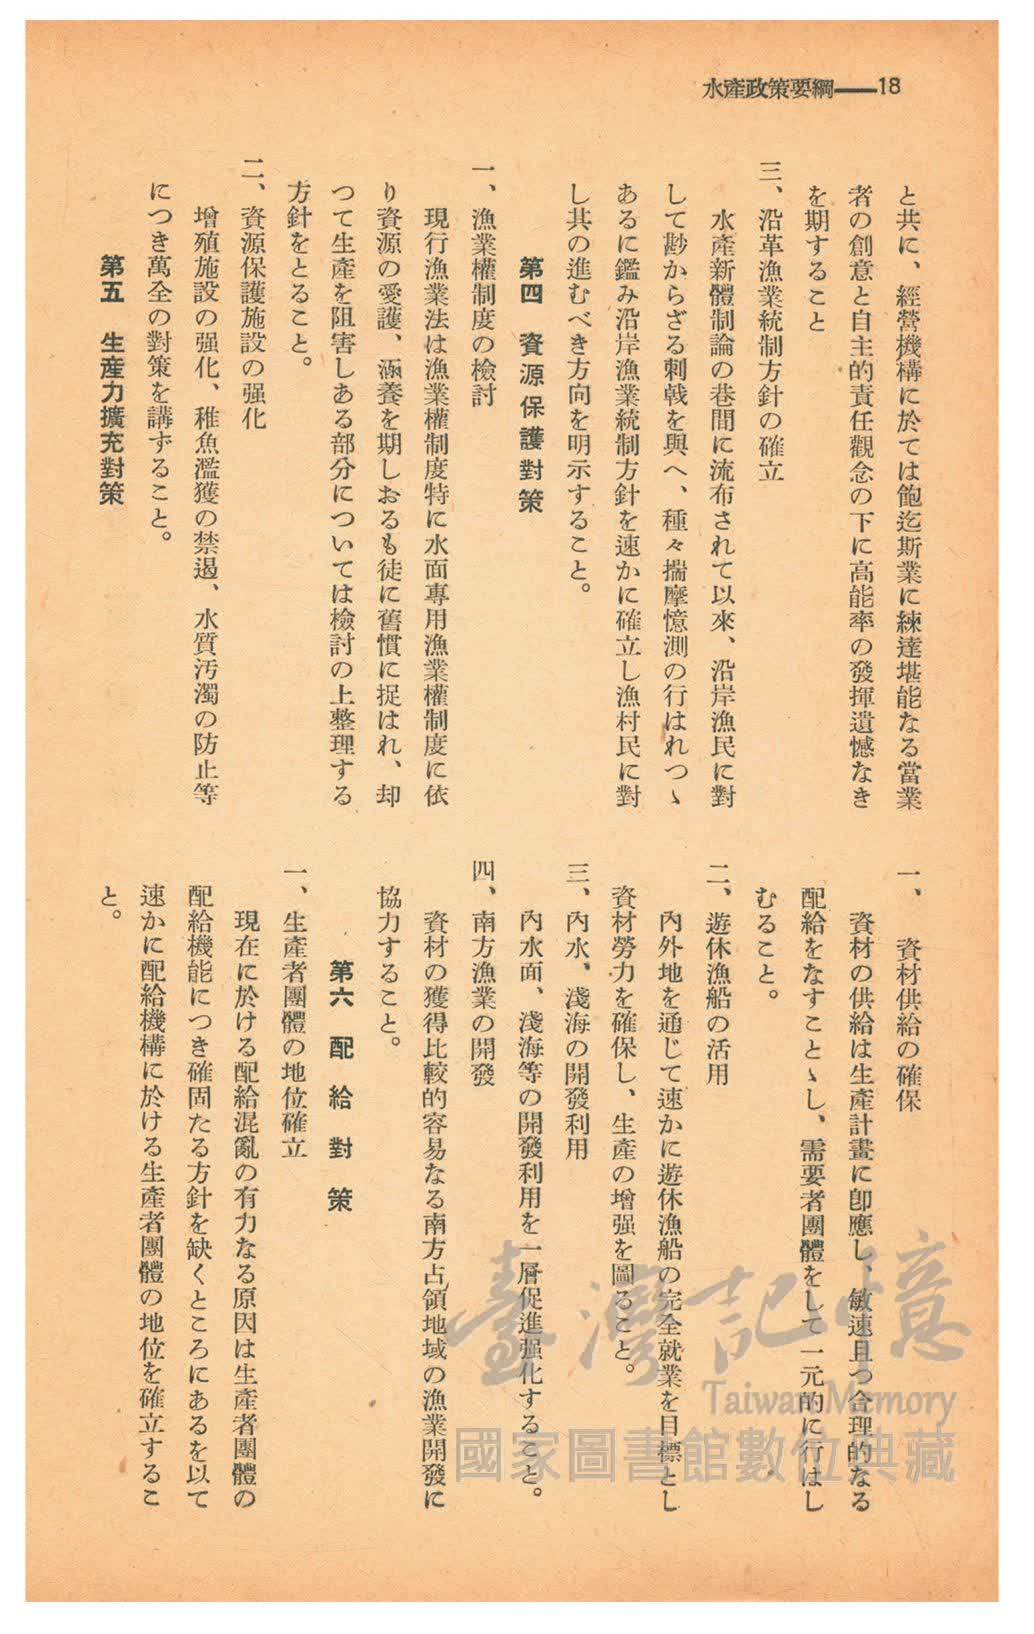 水產政策要綱——18
と共に、經營機構に於ては飽迄斯業に練達堪能なる當業
者の創意と自主的責任觀念の下に高能率の發揮遺憾なき
を期すること
三、沿革漁業統制方針の確立
水產新體制論の巷間に流布されて以來、沿岸漁民に對
して尠からざる刺戟を與へ、種々揣摩憶測の行はれつゝ
あるに鑑み沿岸漁業統制方針を速かに確立し漁村民に對
し其の進むべき方向を明示すること。
第四 資源保護對策
一、漁業權制度の檢討
現行漁業法は漁業權制度特に水面專用漁業權制度に依
り資源の愛護、涵養を期しおるも徒に舊慣に捉はれ、却
つて生產を阻害しある部分については檢討の上整理する
方針をとること。
二、資源保護施設の强化
增殖施設の强化、稚魚濫獲の禁遏、水質汚濁の防止等
につき萬全の對策を講ずること。
第五 生產力擴充對策
一、資材供給の確保
資材の供給は生產計畫に卽應し、敏速且つ合理的なる
配給をなすことゝし、需要者團體をして一元的に行はし
むること。
二、遊休漁船の活用
內外地を通じて速かに遊休漁船の完全就業を目標とし
資材勞力を確保し、生產の增强を圖ること。
三、內水、淺海の開發利用
內水面、淺海等の開發利用を一層促進强化すること。
四、南方漁業の開發
資材の獲得比較的容易なる南方占領地域の漁業開發に
協力すること。
第六 配給對策
一、生產者團體の地位確立
現在に於ける配給混亂の有力なる原因は生產者團體の
配給機能につき確固たる方針を缺くところにあるを以て
速かに配給機構に於ける生產者團體の地位を確立するこ
と。
臺灣記憶
Taiwan Memory
國家圖書館數位典藏